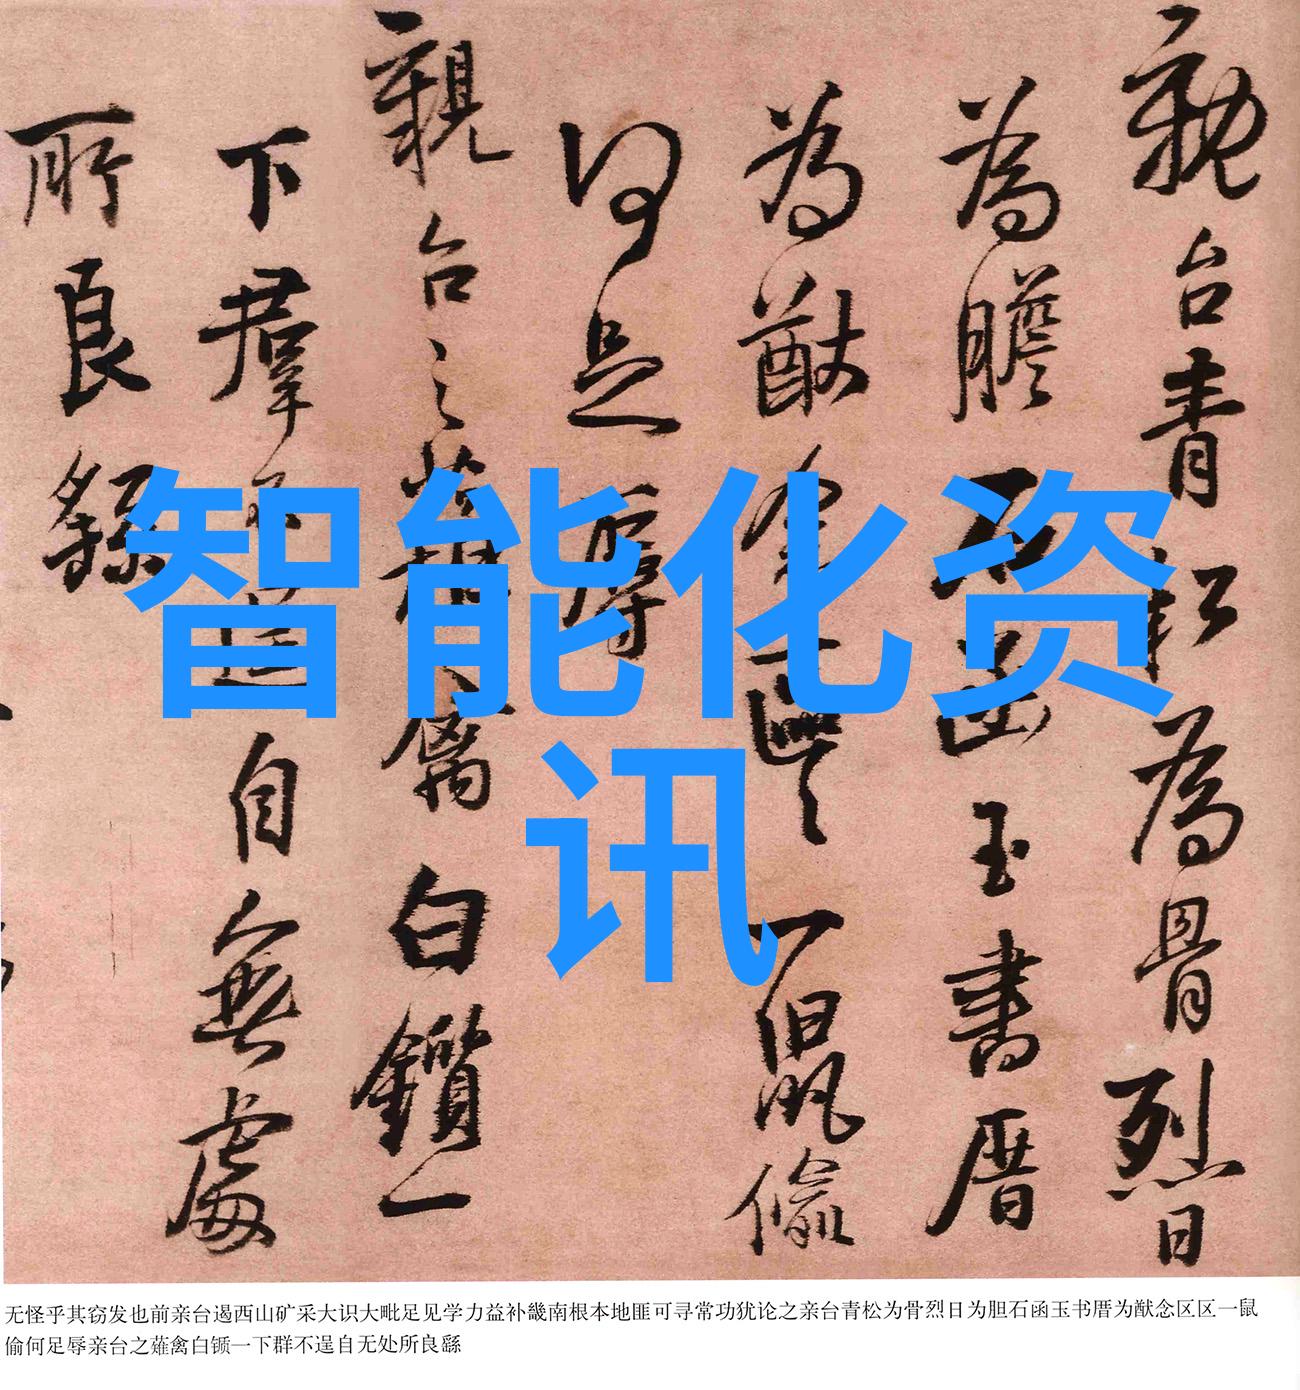 親台青松為骨烈日
為膽石函玉書厝
為猷念區區一鼠偷
何足辱
親台之薙禽白鑕一
下羣不逞自無處
所良繇
智能化资
讯
无怪乎其窃发也前亲台遏西山矿采大识大毗足见学力益补畿南根本地匪可寻常功犹论之亲台青松为骨烈日为胆石函玉书厝为猷念区区一鼠
偷何足辱亲台之薙禽白锧一下群不逞自无处所良繇